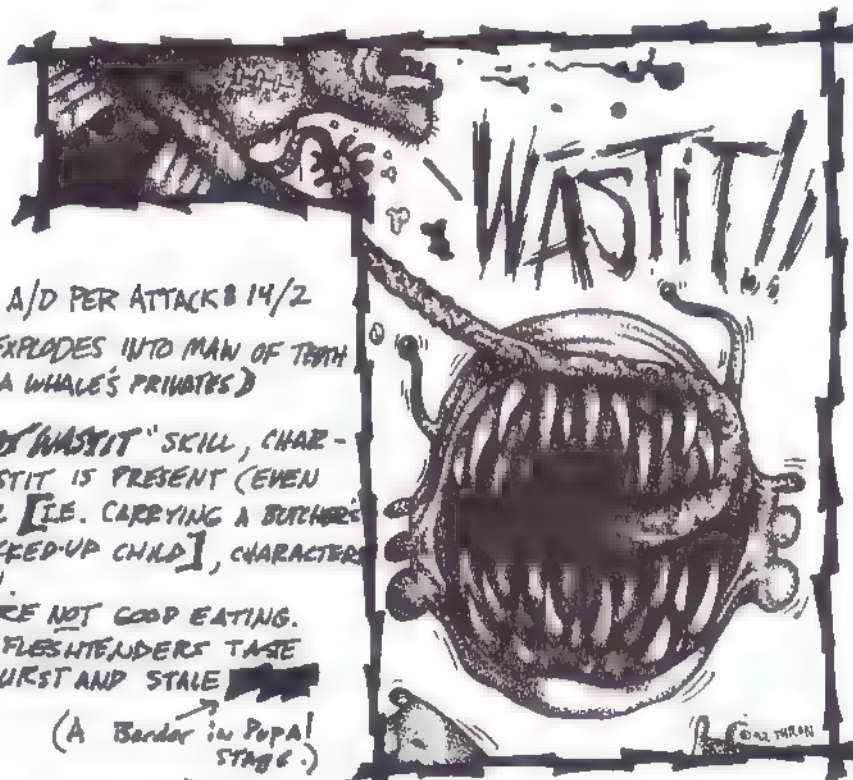 WASTIT!!
A/D PER ATTACK: 14/2
EXPLODES INTO MAW OF TEETH
A WHALE'S PRIVATES)
WASTIT" SKILL, CHAR-
STIT IS PRESENT (EVEN
[I.E. CARRYING A BUTCHER'S
CKED-UP CHILD], CHARACTERS
RE NOT GOOD EATING.
FLESHTENDERS TASTE
URST AND STALE
(A Border in Pupal
Stage.)
©92 THRON